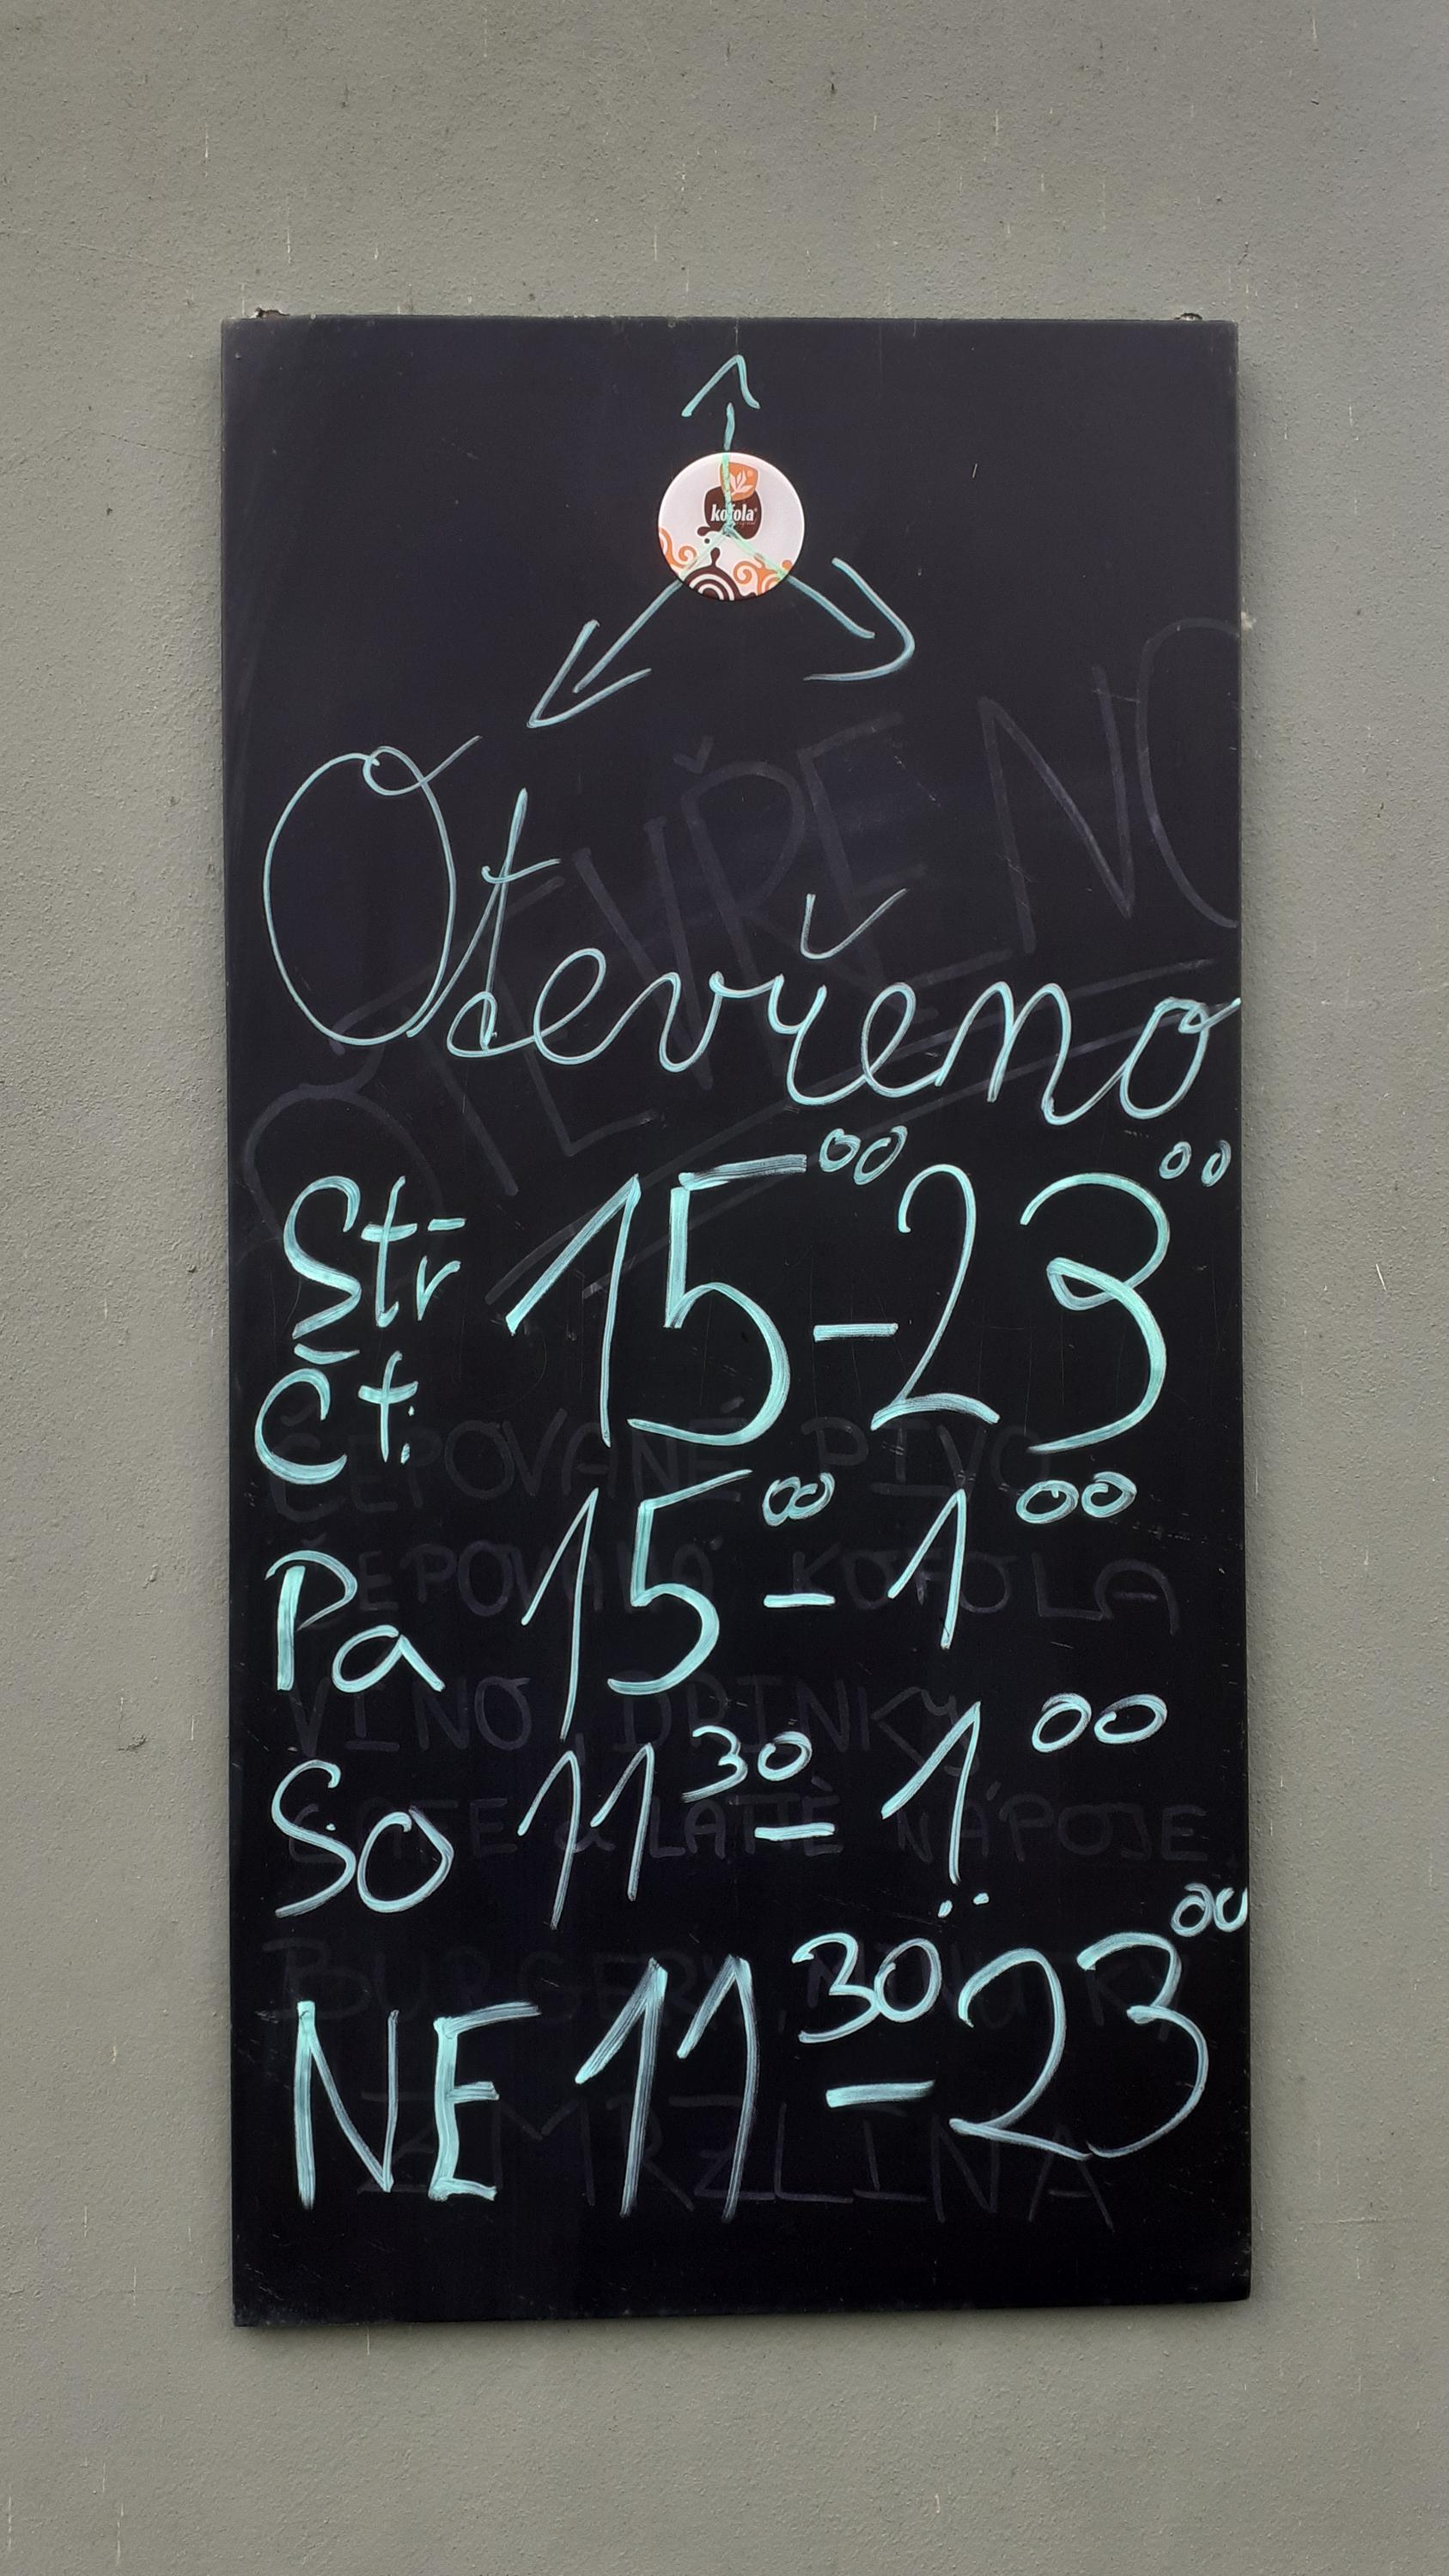 kofola
Otevřeno
Stř 15⁰⁰-23⁰⁰
Čt.
Pa 15⁰⁰-1⁰⁰
So 11³⁰-1⁰⁰
NE 11³⁰-23⁰⁰
OTEVŘENO
ČEPOVANÉ PIVO
ČEPOVANÁ KOFOLA
VÍNO, DRINKY
NÁPOJE
ZMRZLINA